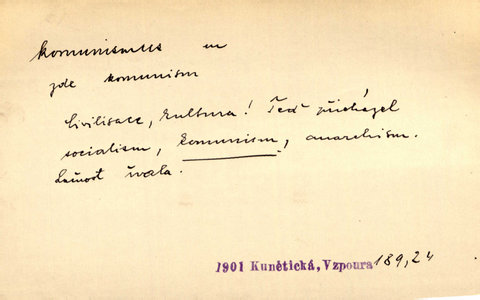 komunismus m
zde komunism
Civilisace, kultura! Teď přicházel
socialism, komunism, anarchism.
Lačnost řvala.
1901 Kunětická, Vzpoura 189,24